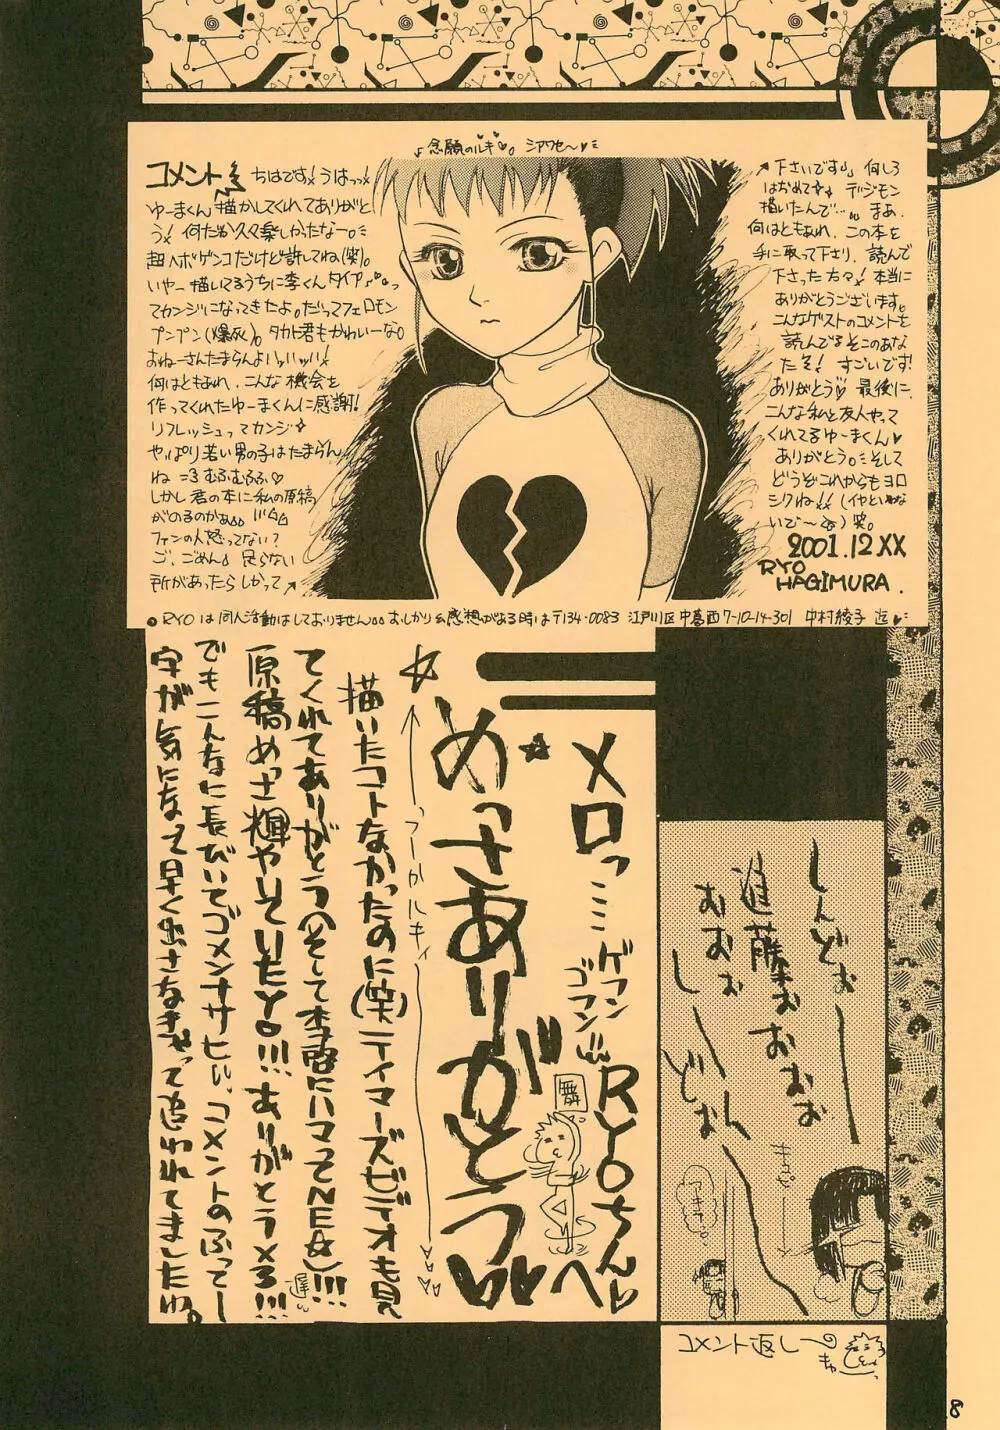 ♪念願のルキ♥。シアワセ〜♥
コメント
ちはです! うはっっ!
ゆーまくん描かしてくれてありがと
う! 何だか久々楽しかったなー。
超ヘボゲンコだけど許してね(笑)。
いやー描いてるうちに李くんタイプ♪
ってカンジになってきたよ。だってフェロモン
プンプン(爆死)。タカト君もかわいーな。
おねーさんたまらんよハッハッハッ!
何はともあれ、こんな機会を
作ってくれたゆーまくんに感謝!
リフレッシュってカンジ☆
やっぱり若い男の子はたまらん
ね =3 むるむるふ♡
しかし君の本に私の原稿
がのるのかぁ
ファンの人怒ってない?
ご、ごめん♪ 足らない
所があったらしかって→
↗下さいです♪ 何しろ
はじめて デジモン
描いたんで…。まぁ、
何はともあれ、この本を
手に取って下さり、読んで
下さった方々! 本当に
ありがとうございます。
こんなゲストのコメントを
読んでるそこのあな
たぞ! すごいです!
ありがとう♡ 最後に、
こんな私と友人やって
くれてるゆーまくん♥
ありがとう。そして
どうぞこれからもヨロ
シクね!! (イヤといわな
いで〜)笑。
2001.12XX
RYO
HAGIMURA.
RYOは同人活動はしておりません おしかり&感想がある時は〒134-0083 江戸川区中葛西7-10-14-301 中村綾子 迄♥
メロっミミ ゲフンゴフン!!! RYOちん♥へ
めっさありがとう♥♥
つーかルキィ
描いたコトなかったのに(笑)テイマーズビデオも見
てくれてありがとう(そして李君にハマってNE☆)!!!
原稿めっさ輝やいていたYO!!!ありがとうメる!!!
でもこんなに長びいてゴメンナサヒぃ。コメントのふってー
字が気になって早く出さなきゃって追われてましたね。
しんどぉー
進藤ぉおぉぉ
おおぉ
しーんどぉ
キュピー
コメント返し〜
8